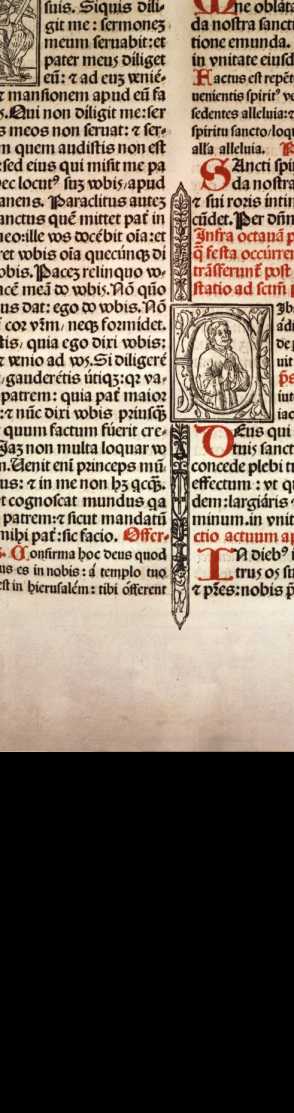 suis. Siquis dili-
git me : sermonez
meum seruabit: et
pater meus diliget
eū: ⁊ ad euz venie-
⁊ mansionem apud eū fa
Qui non diligit me: ser
s meos non seruat: ⁊ ser-
m quem audistis non est
: sed eius qui misit me pa
ec locutꝰ suz vobis/apud
anens. Paraclitus autez
anctus quē mittet pať in
meo: ille vos docēbit oīa: et
ret vobis oīa quecūnqz di
obis. Pacez relinquo vo-
acē meā do vobis. Nō quo
us dat: ego do vobis. Nō
cor vr̄m/ neqz formidet.
tis/ quia ego dixi vobis:
⁊ venio ad vos. Si diligeré
/gauderétis útiqz: qr va-
patrem: quia pať maior
: ⁊ nūc dixi vobis priusqz
quum factum fúerit cre-
Jaz non multa loquar vo
n. Uenit eni princeps mū
us: ⁊ in me non hz qcqz.
t cognoscat mundus qa
patrem: ⁊ sicut mandatū
mihi pať: sic facio. Offer-
Confirma hoc deus quod
us es in nobis: á templo tuo
est in hierusalém: tibi offerent
ne oblata
da nostra sanct
tione emunda.
in vnitate eiusd
Factus est repēt
uenientis spiritꝰ ve
sedentes alleluia: ⁊
spiritu sancto/loqu
all'a alleluia.
Sancti spir
da nostra
⁊ sui roris intin
cūdet. Per dn̄m
Infra octauā p
q̄ festa occurren
trāsferunť post
statio ad scm̄ p
Jb
adi
de p
uit
ps
iut
iac
Deus qui
tuis sanct
concede plebi t
effectum : vt q
dem: largiáris
minum. in vnit
ctio actuum ap
In diebꝰ i
trus os su
⁊ p̄es: nobis p̄